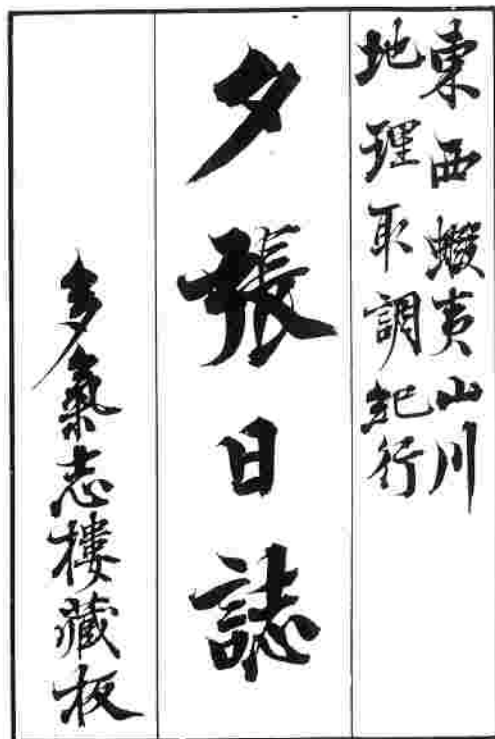 東西蝦夷山川
地理取調紀行
夕張日誌
多氣志樓藏板